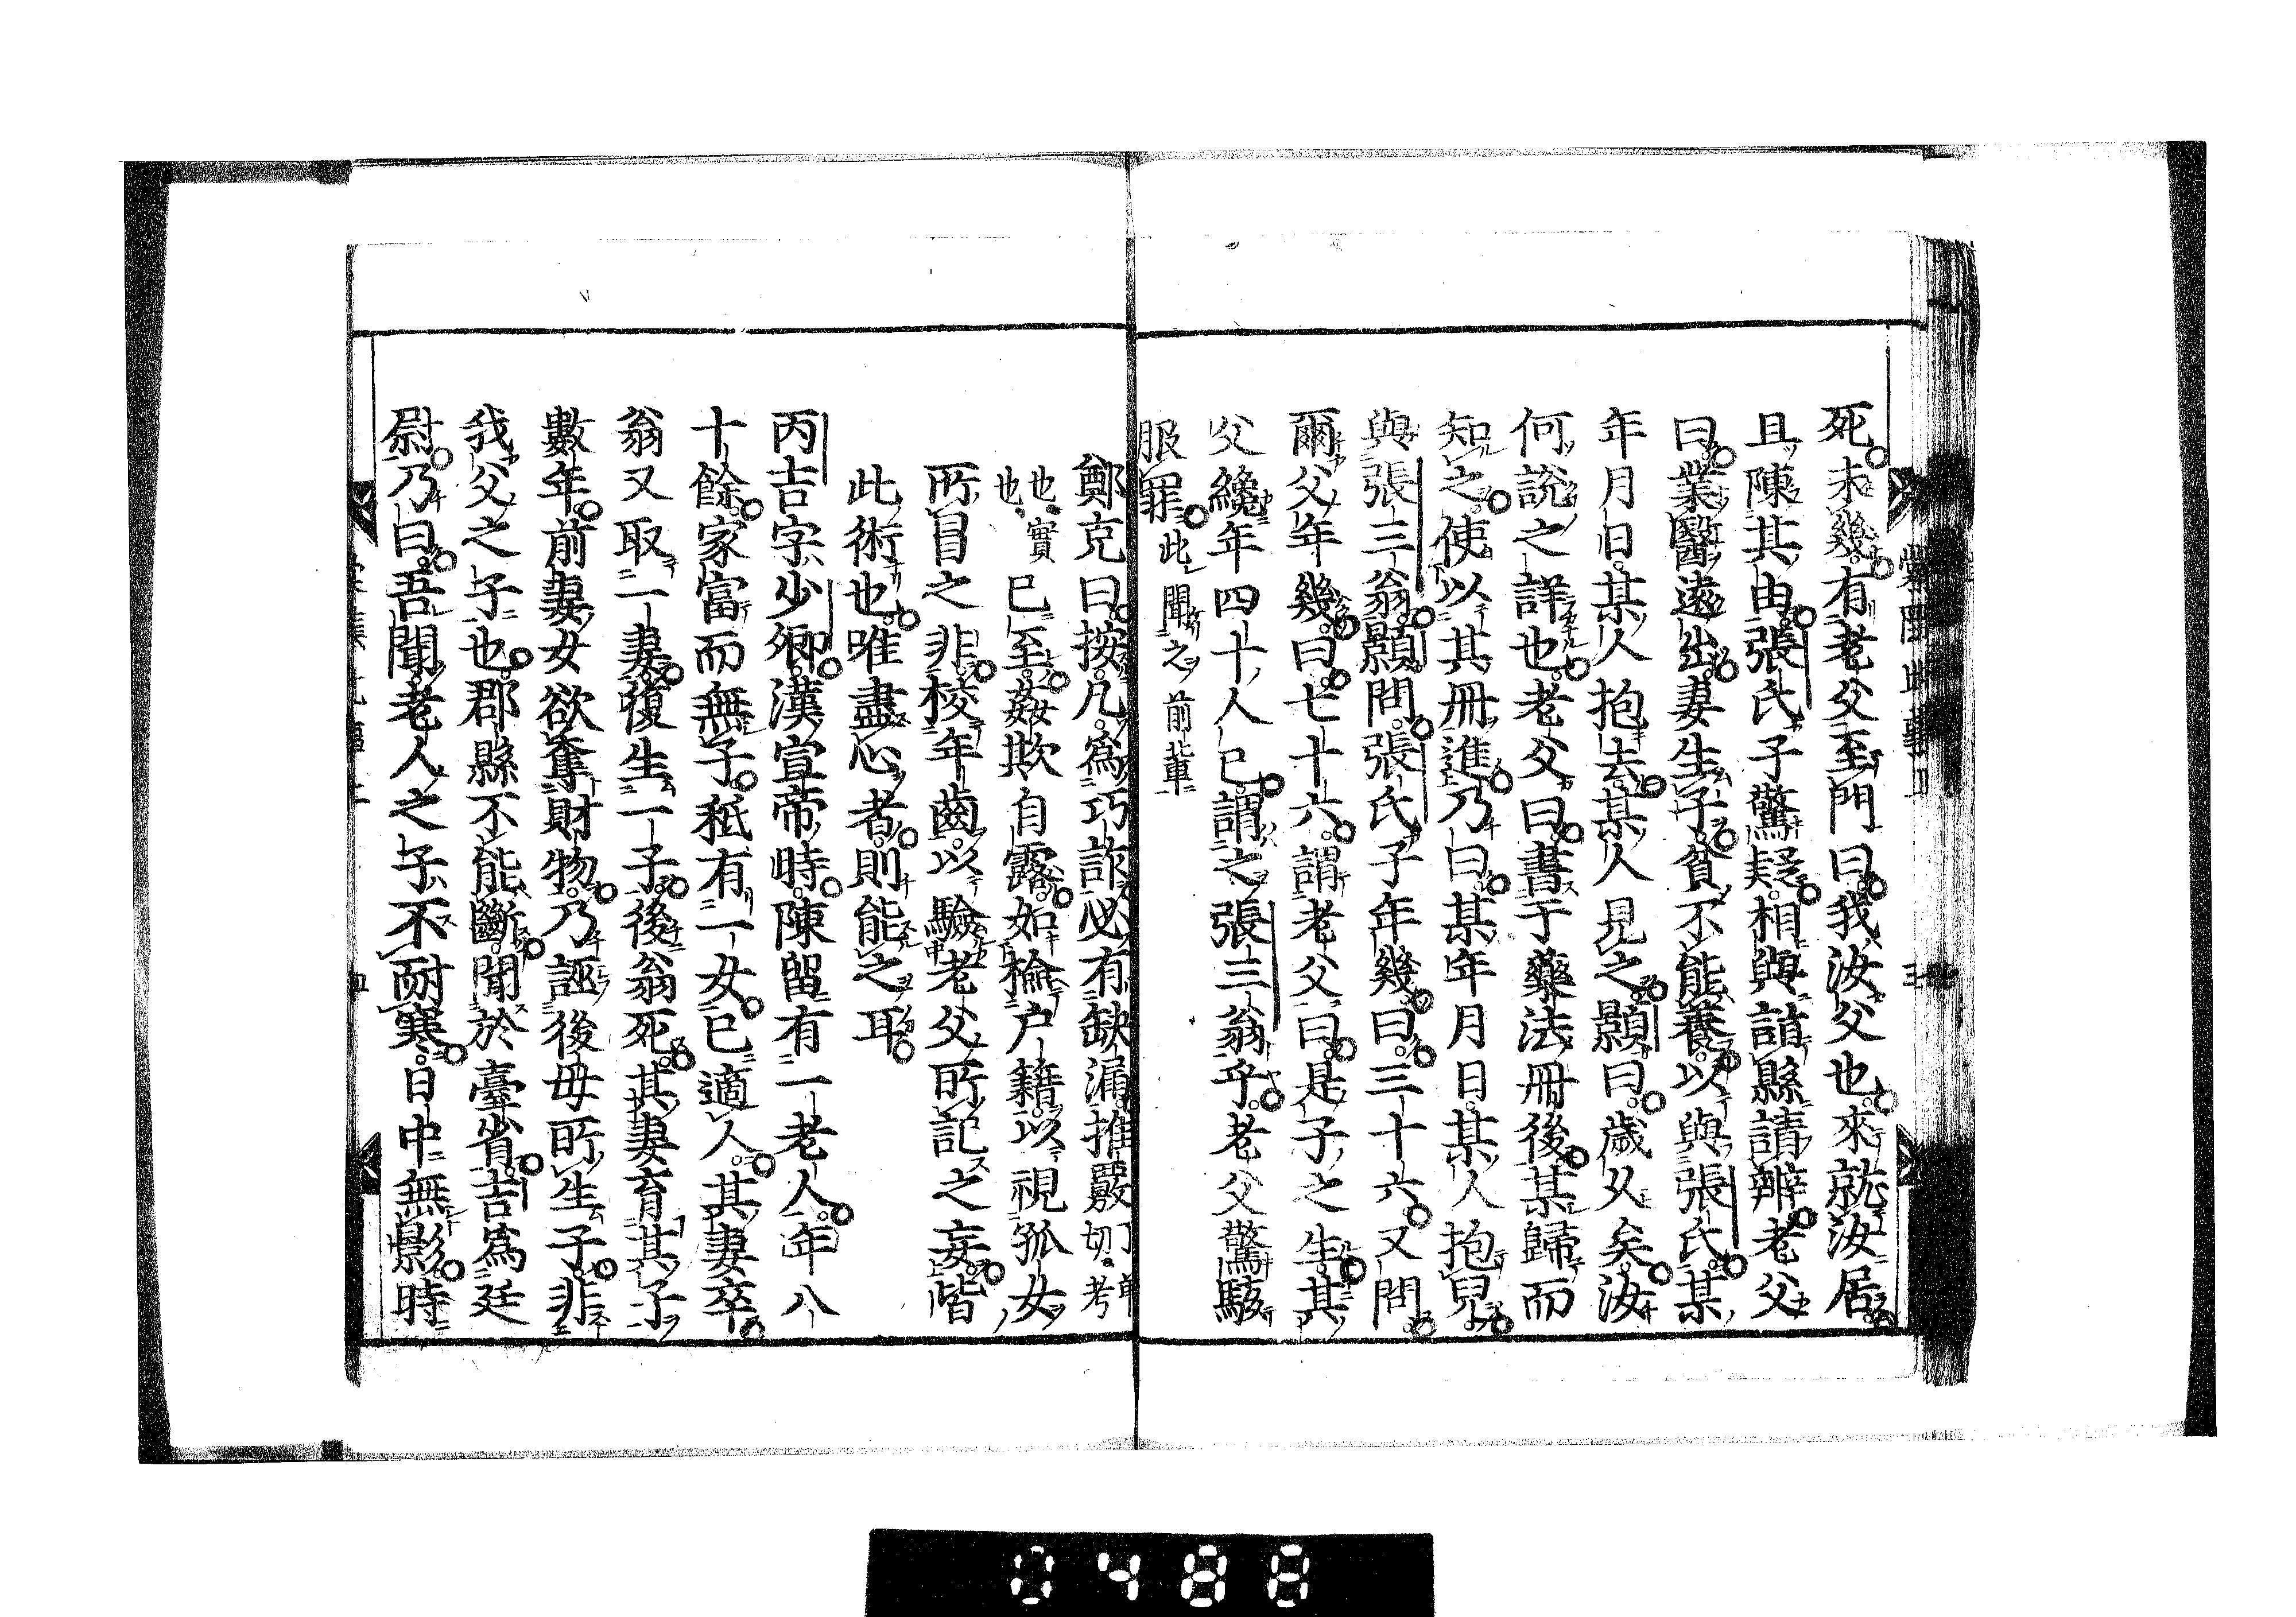 死未幾有老父至門曰我汝父也來就汝居
且陳其由張氏子驚疑相與詣縣請辨老父
曰業醫遠出妻生子貧不能養以與張氏某
年月日某人抱去某人見之顥曰歲乆矣汝
何說之詳也老父曰書于藥法冊後某歸而
知之使以其冊進乃曰某年月日某人抱兒
與張三翁顥問張氏子年幾曰三十六又問
爾父年幾曰七十六謂老父曰是子之生其
父纔年四十人已謂之張三翁乎老父驚駭
服罪此聞之前輩
鄭克曰按凡爲巧詐必有缺漏推覈切考
也實
也
已至姦欺自露如檢户籍以視孤女
所目之非校年齒以驗老父所記之妄皆
此術也唯盡心者則能之耳
丙吉字少卿漢宣帝時陳留有一老人年八
十餘家富而無子秪有一女已適人其妻卒
翁又取一妻復生一子後翁死其妻育其子
數年前妻女欲奪財物乃誣後母所生子非
我父之子也郡縣不能斷聞於臺省吉爲廷
尉乃曰吾聞老人之子不耐寒日中無影時
0488